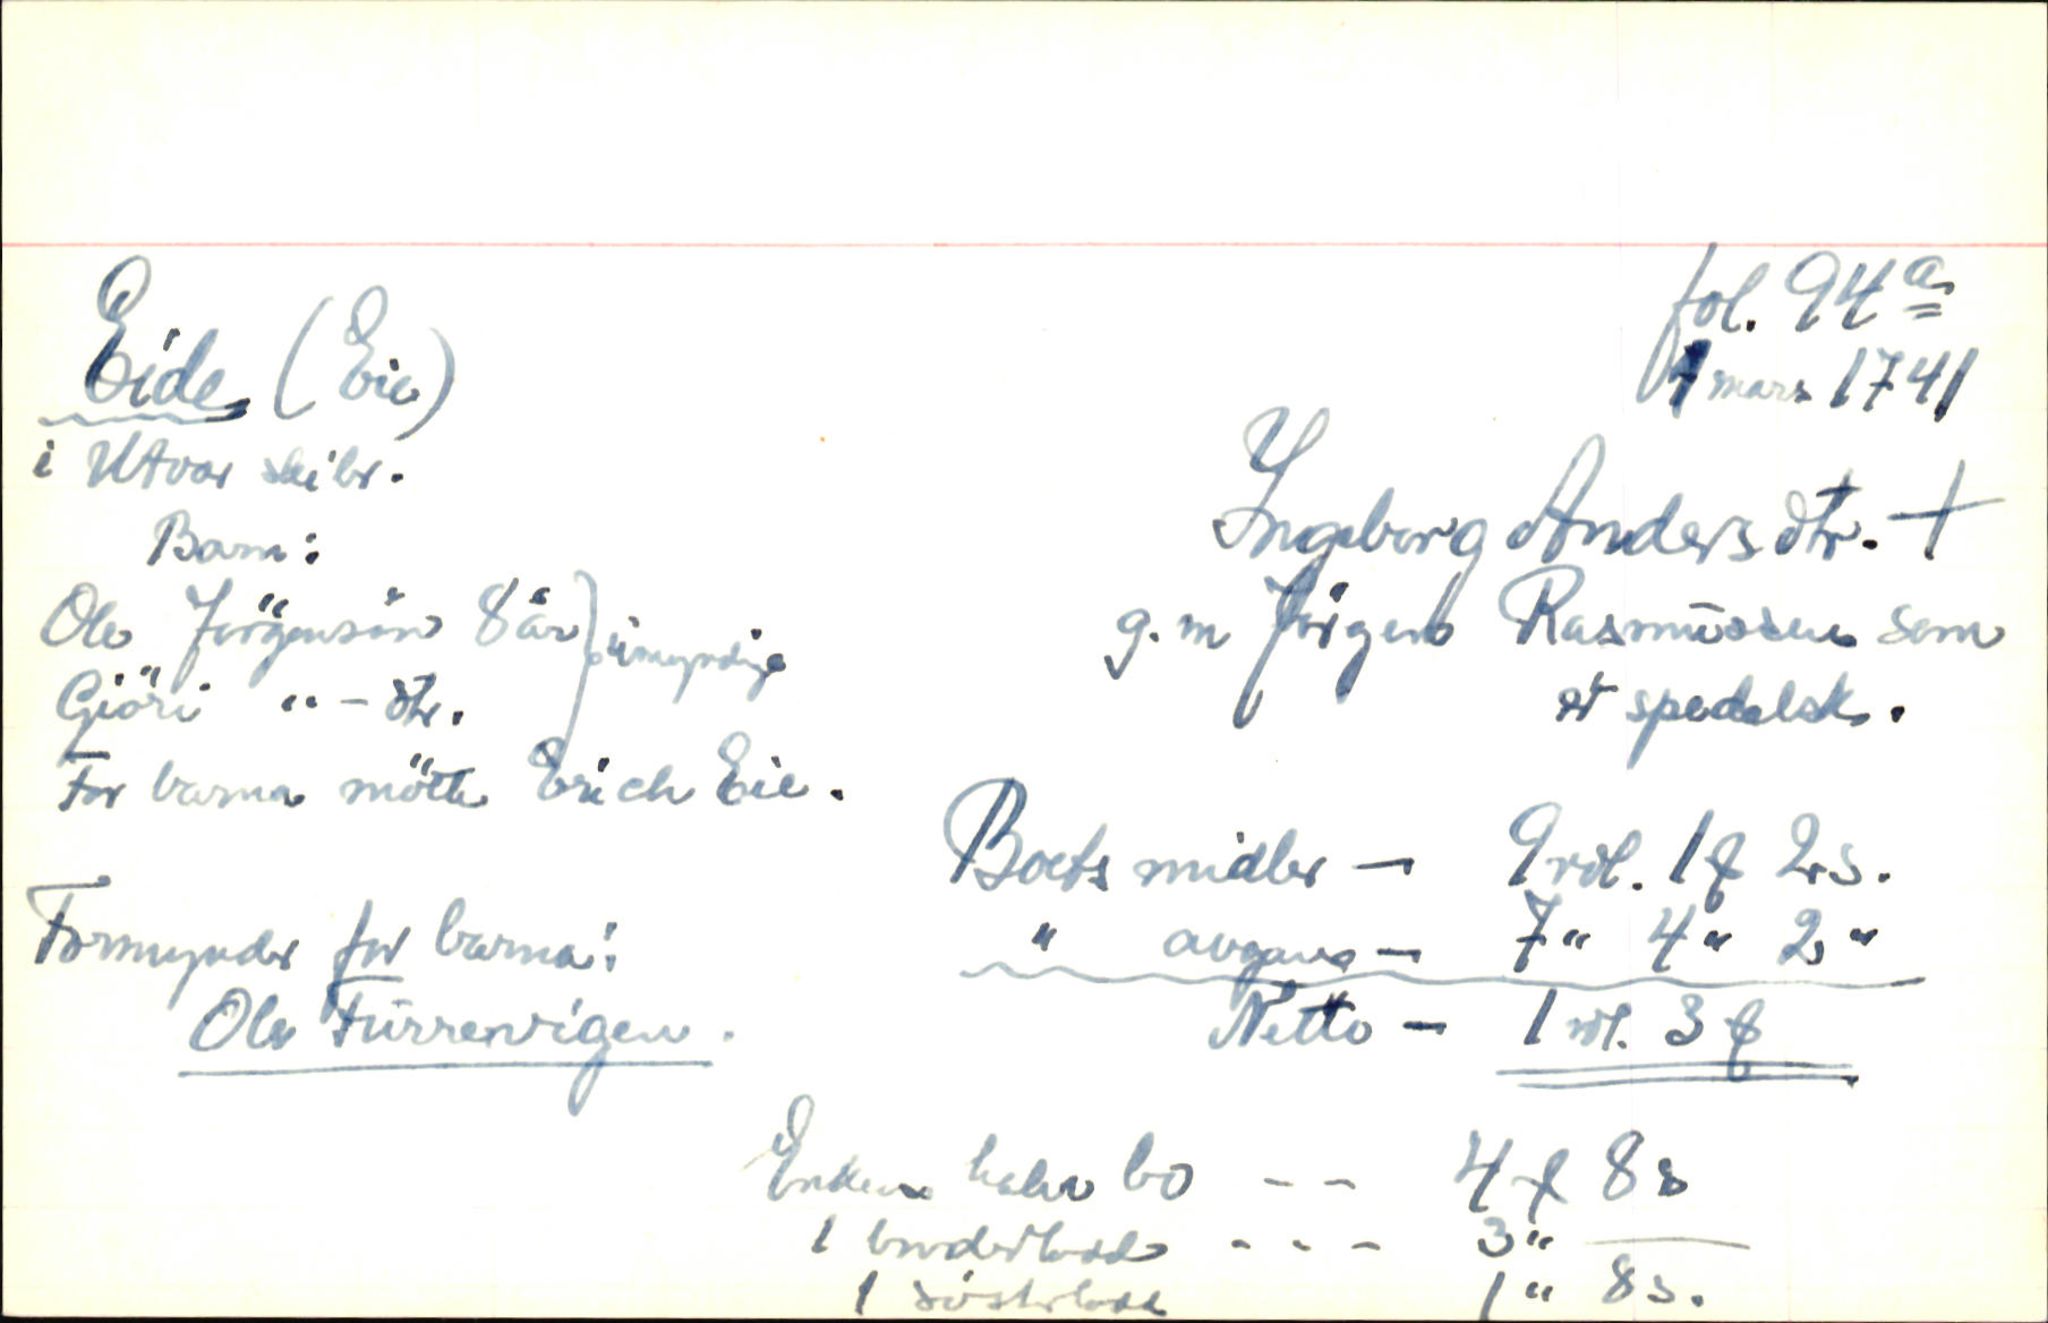 fol. 94 a
1 mars 1741
Eide (Eie)
i Utvær skibr.
Ingeborg Andersdtr. +
g. m Jörgen Rasmüssen som
er spedalsk.
Barn:
Ole Jörgensön 8 år } umyndige
Giöri " - dtr.
For barna mötte Erich Eie.
Formynder for barna:
Ole Fürrevigen.
Boets midler - 9 rdl. 1 ƒ 2 s.
" avgang - 7 " 4 " 2 "
Netto - 1 rdl. 3 ƒ
Enkens halve bo - - 4 ƒ 8 s
1 broderlodd - - - 3 " —
1 sösterlodd 1 " 8 s.